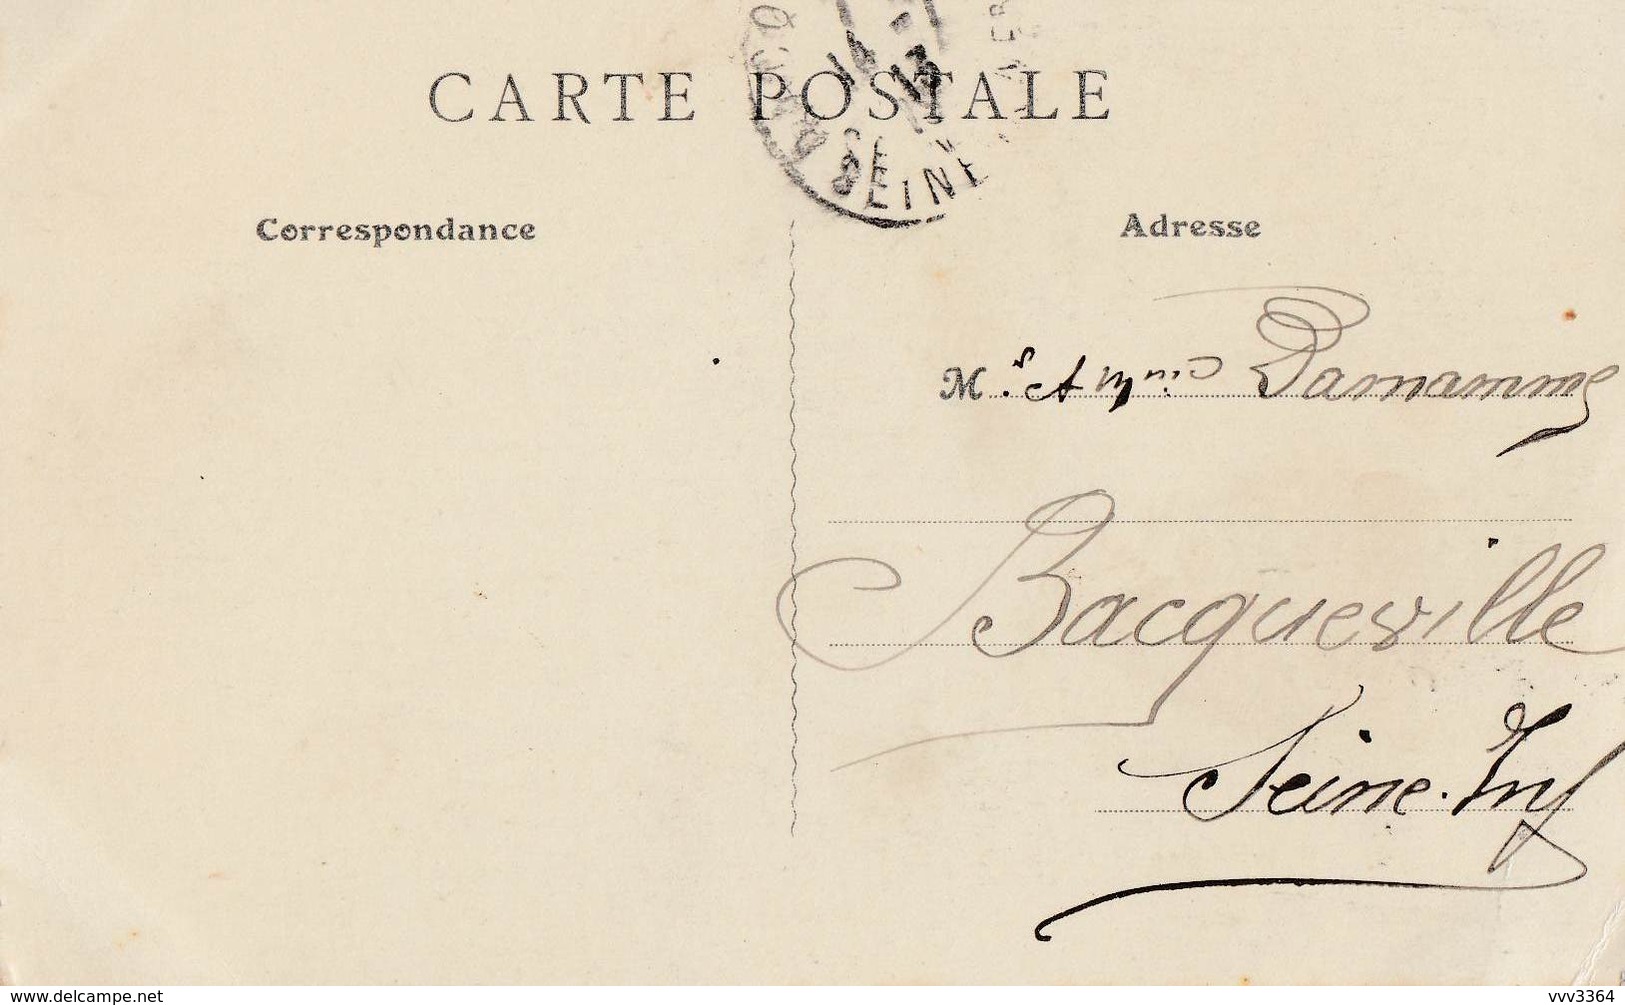 CARTE POSTALE
14
13
SEINE
Correspondance
Adresse
Mr.
Bacqueville
Seine. Inf
www.delcampe.net
vvv3364